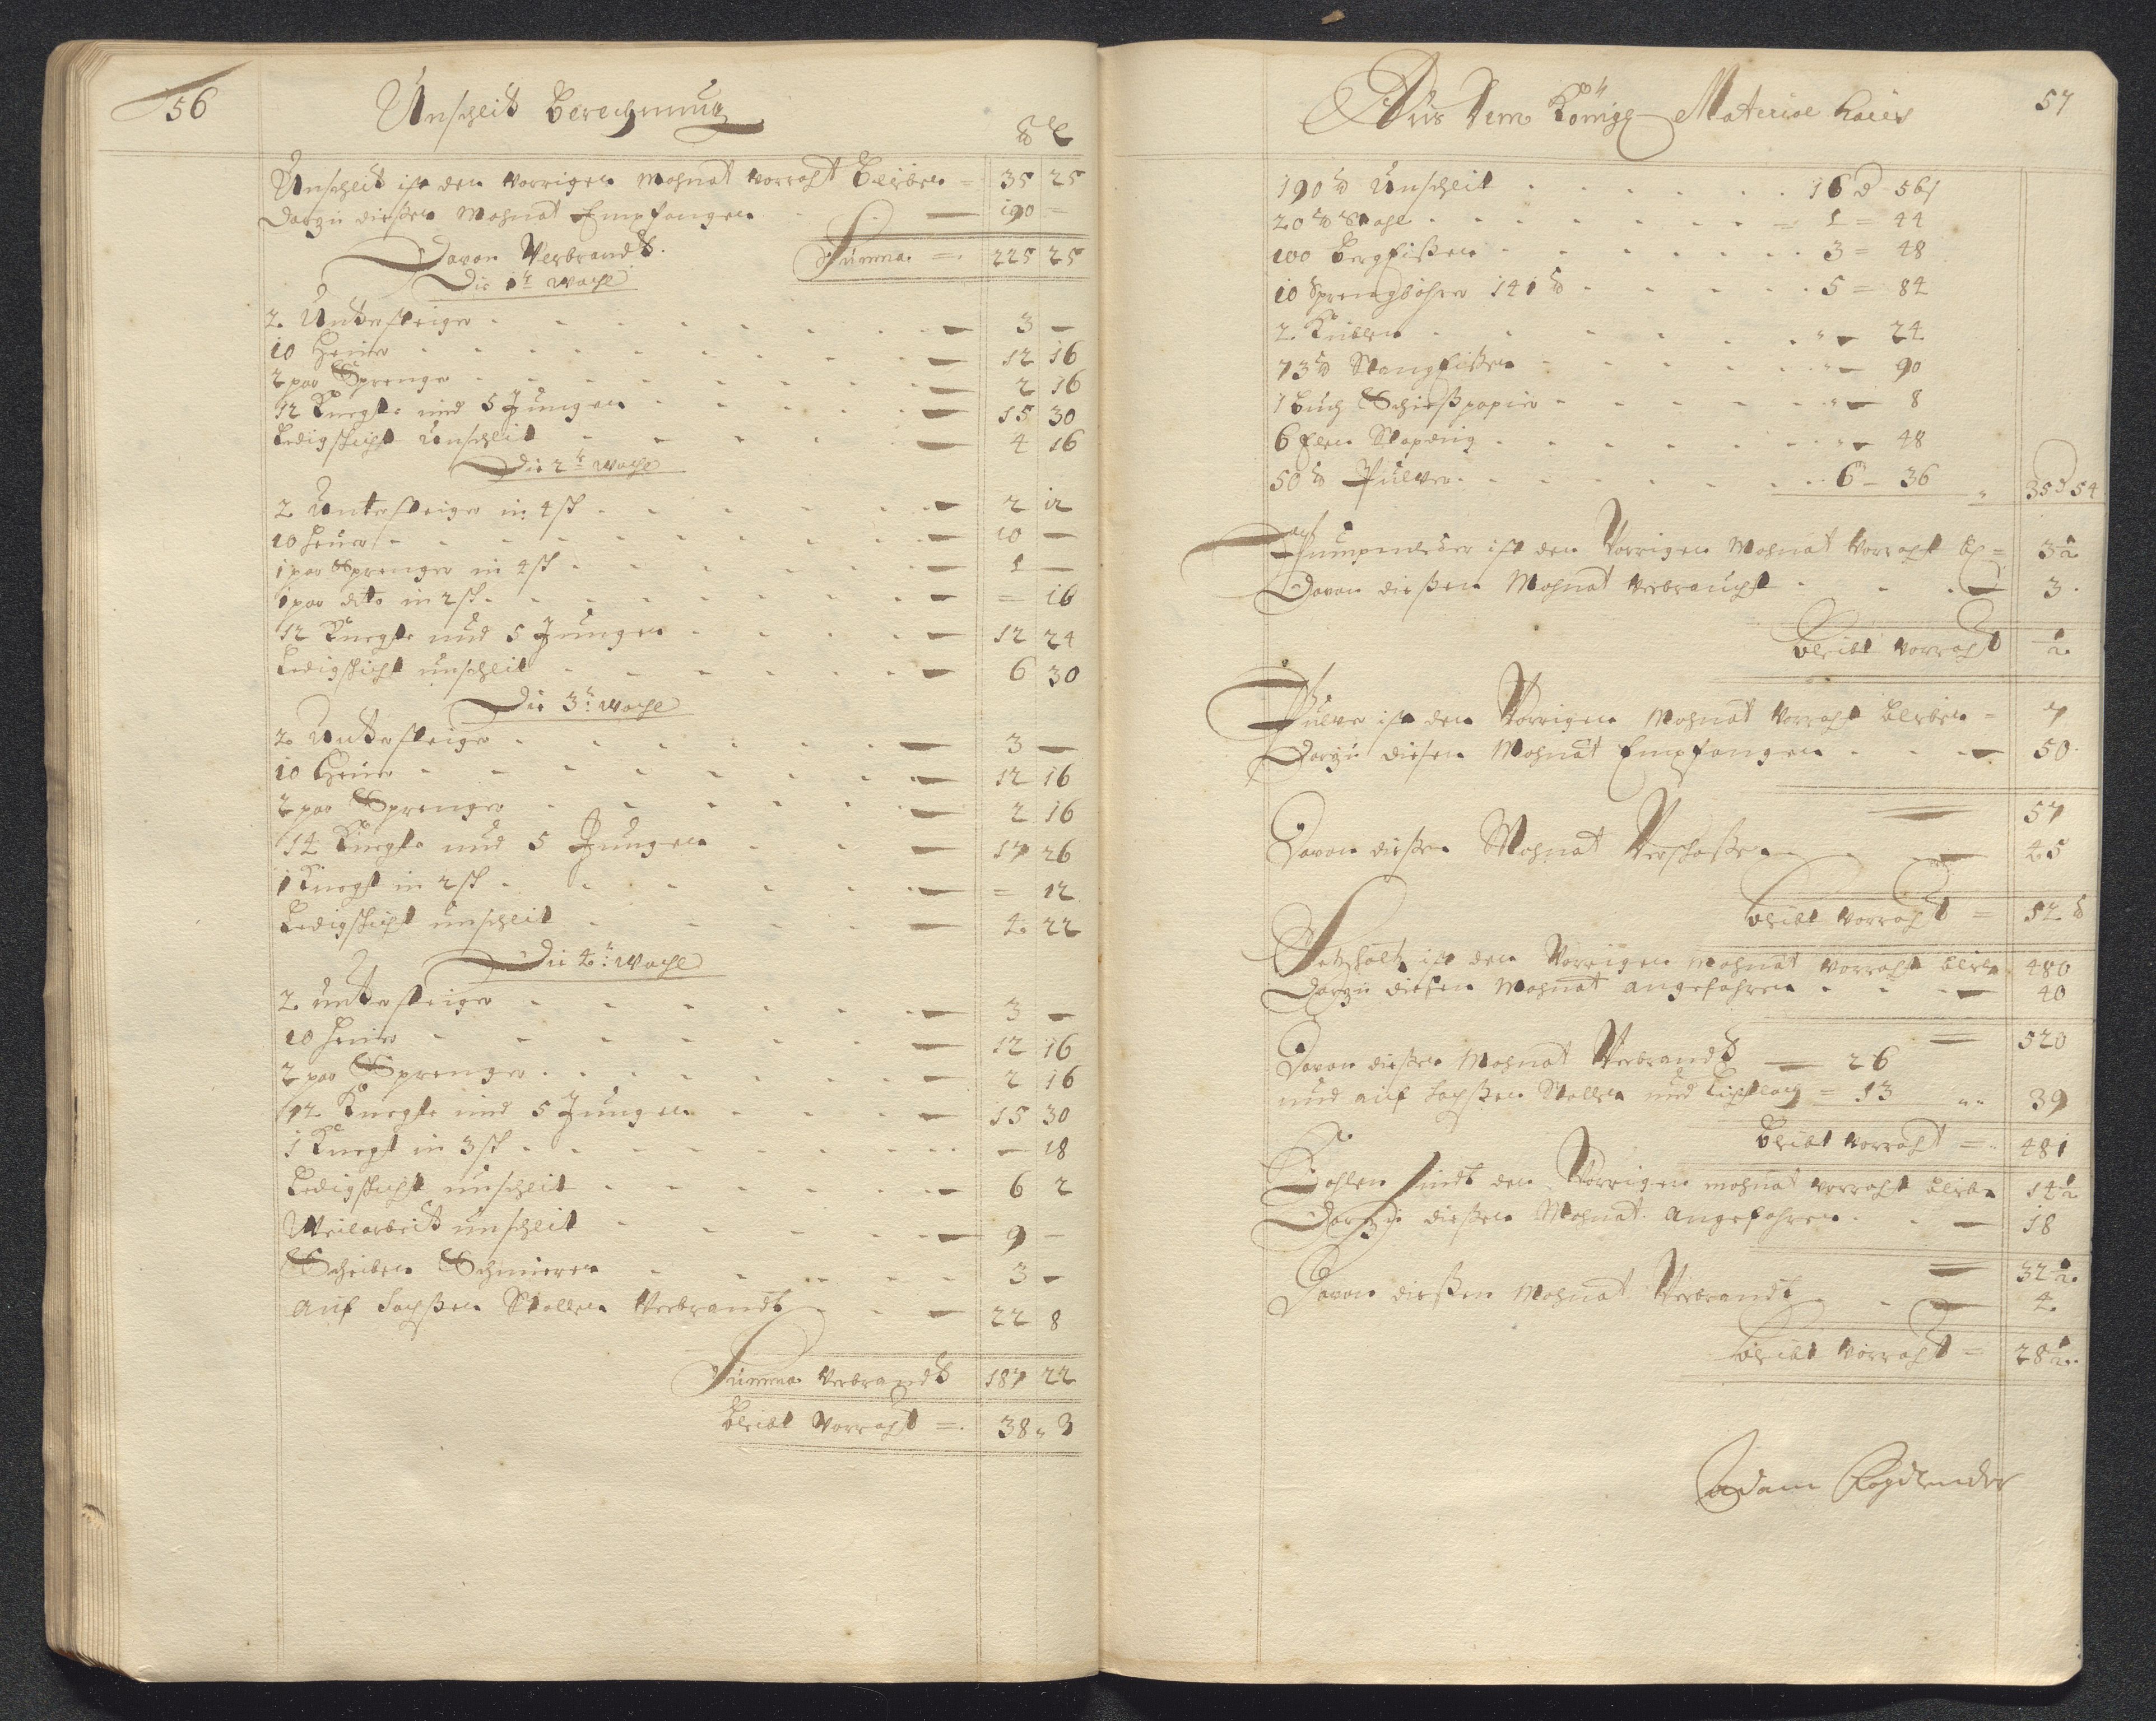 56
Unschlit Berechnung
℔ L
Unschlit ist den Vorrigen Mohnat Vorraht bleiben = 35 25
Darzu dießen Mohnat Empfangen — 190 =
Davon Verbrandt. Summa = 225 25
Die 1te Woche
2. Untersteiger — 3 —
10 Heuer — 12 16
2 par Sprenger — 2 16
12 Knechte und 5 Jungen — 15 30
Ledigschicht Unschlit — 4 16
Die 2te Woche
2 Untersteiger in 4 sch — 2 12
10 Heuer — 10 —
1 par Sprenger in 4 sch — 1 —
1 par dito in 2 sch — = 16
12 Knechte und 5 Jungen — 12 24
Ledigschicht unschlit — 6 30
Die 3te Woche
2. Untersteiger — 3 —
10 Heuer — 12 16
2 par Sprenger — 2 16
14 Knechte und 5 Jungen — 17 26
1 Knecht in 2 sch — = 12
Ledigschicht unschlit — 4 22
Die 4te Woche
2. untersteiger — 3 —
10 Heuer — 12 16
2 par Sprenger — 2 16
12 Knechte und 5 Jungen — 15 30
1 Knecht in 3 sch — 18
Ledigschicht unschlit — 6 2
Weilarbeit unschlit — 9 —
Scheiben Schmieren — 3 —
auf Sachßen Stollen Verbrandt — 22 8
Summa Verbrandt 187 22
bleibt Vorraht = 38 „ 3
57
Aus Dem Königl Material Haus
190 ℔ Unschlit 16 d 56
20 ℔ Stahl = 1 = 44
100 Bergfißen 3 = 48
10 Sprengböhrer 141 ℔ 5 = 84
2. Kublen „ — 24
73 ℔ Stangfißen „ — 90
1 Buch Schießpapier „ — 8
6 Elen „ — 48
50 ℔ Pulver 6 — 36 „ 35 d 54
Pumpenleder ist den Vorrigen Mohnat Vorraht bl = 3 1/2
Davon dießen Mohnat Verbraucht — 3
bleibt Vorraht 1/2
Pulver ist den Vorrigen Mohnat Vorraht bleiben = 7
Darzu diesen Mohnat Empfangen — 50
— 57
Davon dießen Mohnat Verschoßen — 45
bleibt Vorraht = 12 ℔
Setzholtz ist den Vorrigen Mohnat Vorraht bleiben 480
Darzu diesen Mohnat angefahren — 40
= 520
Davon dießen Mohnat Verbrandt — 26
und auf Sachßen Stollen und = 13 „ 39
bleibt Vorraht = 481
Kohlen sindt den Vorrigen mohnat vorraht bleiben 14 1/2
Darzu dießen Mohnat angefahren — 18
= 32 1/2
Davon dießen Mohnat Verbrandt — 4
bleibt Vorraht = 28 1/2
Adam